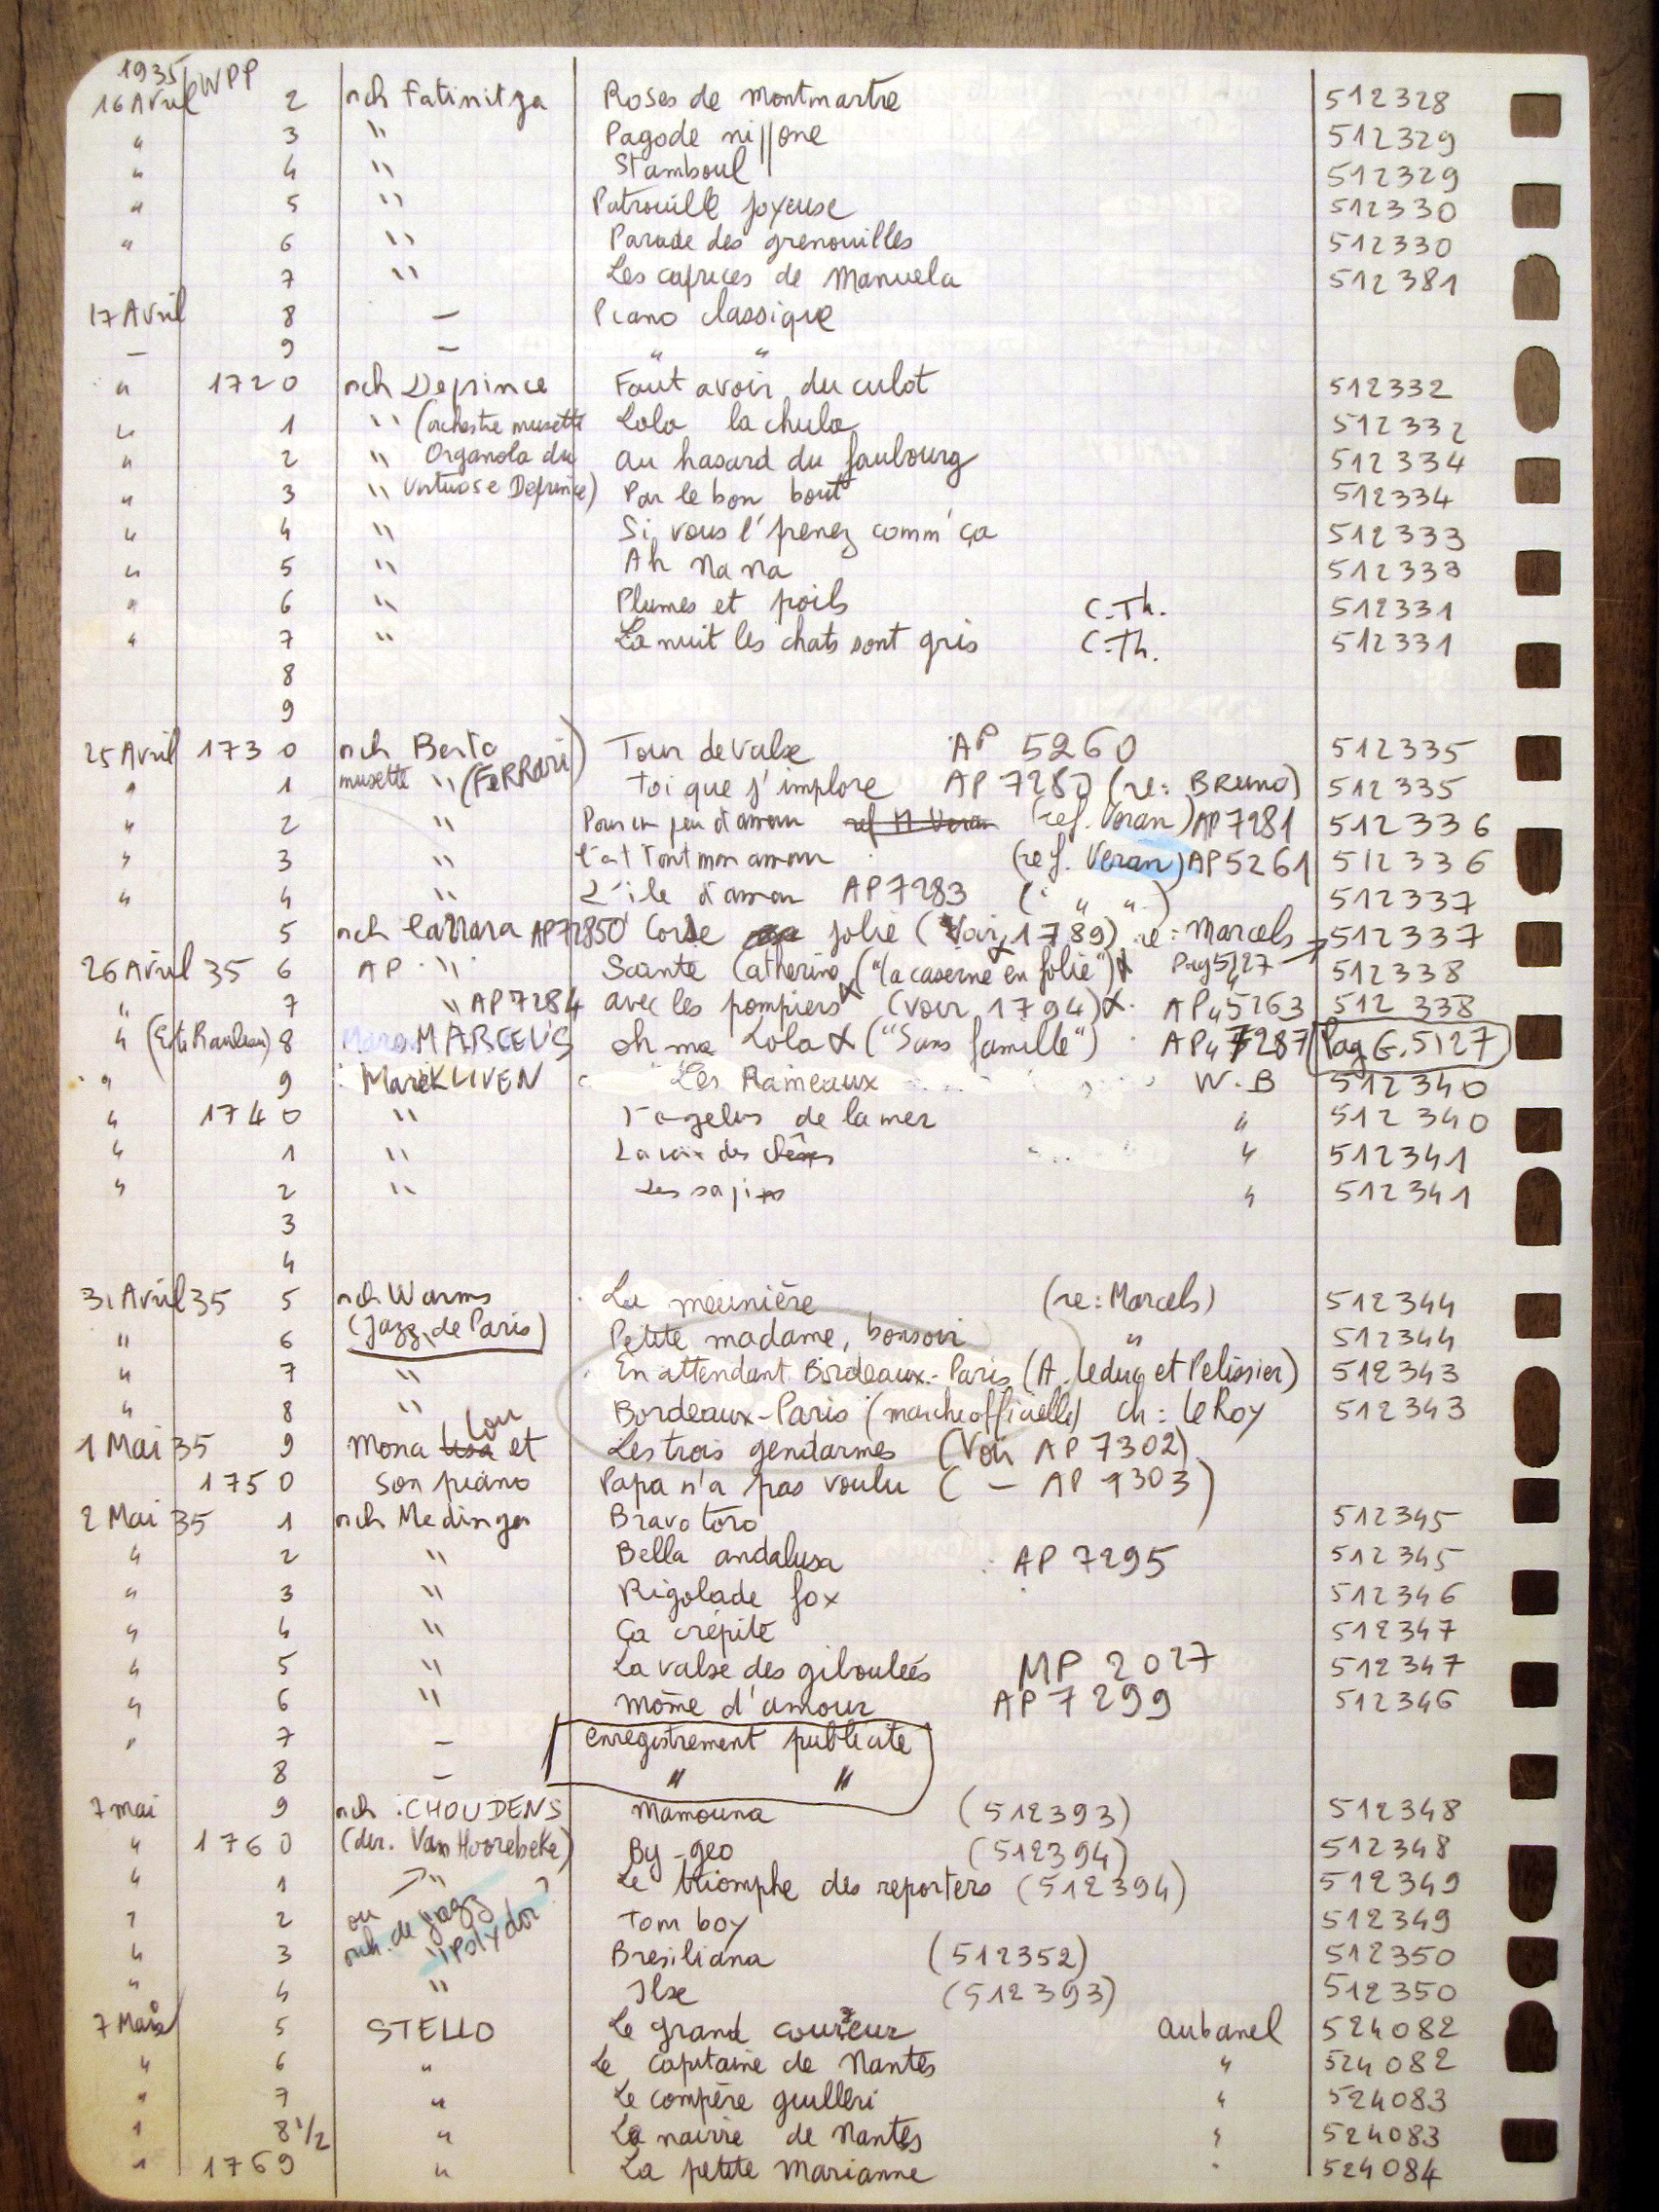 1935 WPP
16 Avril 2 orch Fatinitza Roses de Montmartre 512328
" 3 " Pagode nippone 512329
" 4 " Stamboul 512329
" 5 " Patrouille joyeuse 512330
" 6 " Parade des grenouilles 512330
7 " Les caprices de Manuela 512381
17 Avril 8 — Piano classique
— 9 — " "
" 1720 orch Deprince Faut avoir du culot 512332
" 1 " (orchestre musette Lola la chula 512332
" 2 " Organola du au hasard du faubourg 512334
" 3 " virtuose Deprince) Par le bon bout 512334
" 4 " Si vous l'prenez comm' ça 512333
" 5 " Ah Nana 512333
" 6 " Plumes et poils C.Th. 512331
" 7 " La nuit les chats sont gris C.Th. 512331
8
9
25 Avril 1730 orch Berto Tour de valse AP 5260 512335
" 1 musette " (FeRRari) Toi que j'implore AP 7280 (re: BRuno) 512335
" 2 " Pour un peu d'amour ref H Veran (ref. Veran) AP7281 512336
" 3 " C'est tout mon amour (ref. Veran) AP5261 512336
" 4 " L'ile d'amour AP7283 (" " ") 512337
5 orch Carrara AP72850 Corse jolie (Voir 1789) re: Marcels 512337
26 Avril 35 6 AP " Sainte Catherine ("la caserne en folie") X Pag 5127 → 512338
" 7 " AP7284 avec les pompiers X (voir 1794) X AP 5263 512338
" 8 MARCEL'S oh ma Lola X ("Sans famille") AP 7287 Pag G. 5127
" 9 Marc KLIVEN Les Rameaux W.B 512340
" 1740 " l'angelus de la mer " 512340
" 1 " La voix des chênes " 512341
" 2 " Les sapins " 512341
3
4
31 Avril 35 5 orch Warms La meunière (re: Marcels) 512344
" 6 (Jazz de Paris) Petite madame, bonsoir " 512344
" 7 " En attendant Bordeaux-Paris (A. Leduc et Pelissier) 512343
" 8 " Bordeaux-Paris (marche officielle) ch: LeRoy 512343
1 Mai 35 9 Mona Lisa Lou et Les trois gendarmes (Voir AP 7302)
1750 son piano Papa n'a pas voulu ( — AP 7303)
2 Mai 35 1 orch Medinger Bravo toro 512345
" 2 " Bella andalusa AP 7295 512345
" 3 " Rigolade fox 512346
" 4 " Ça crépite 512347
" 5 " La valse des giboulées MP 2027 512347
" 6 " Môme d'amour AP 7299 512346
" 7 — enregistrement publicité
8 — " "
7 mai 9 orch. CHOUDENS Mamouna (512393) 512348
" 1760 (dir. Van Hoorebeke) By-geo (512394) 512348
" 1 " Le triomphe des reporters (512394) 512349
" 2 ou orch. de jazz Tom boy 512349
" 3 " Polydor? Bresiliana (512352) 512350
" 4 " Ilse (512393) 512350
7 Mai 5 STELLO Le grand coureur Aubanel 524082
" 6 " Le capitaine de Nantes " 524082
" 7 " Le compère guilleri " 524083
" 8 1/2 " Le navire de Nantes " 524083
" 1769 " La petite Marianne " 524084